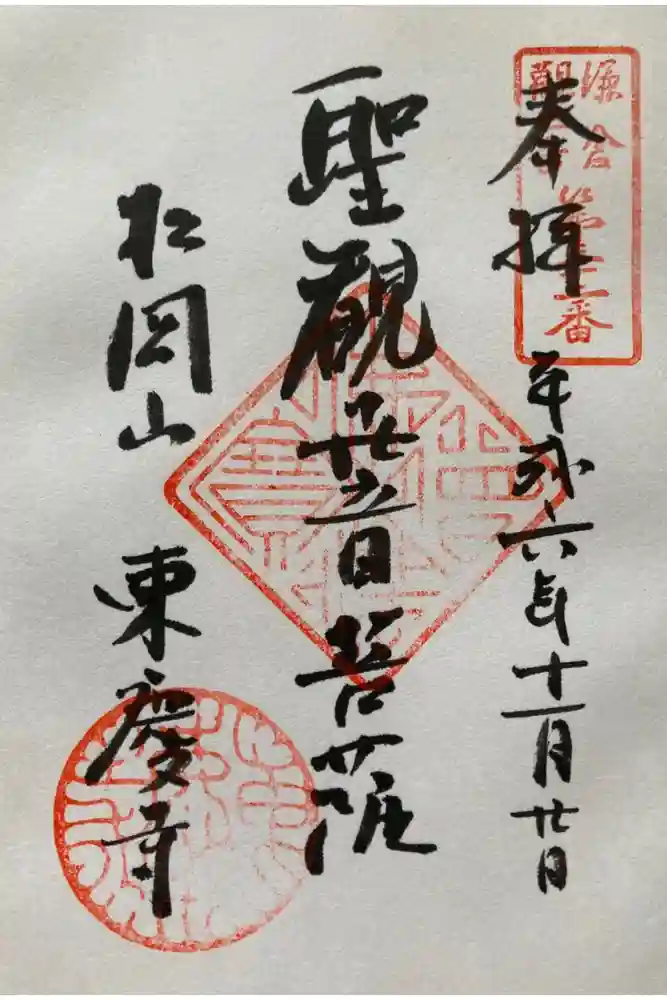 奉拝
平成六年十一月廿日
聖觀世音菩薩
松岡山 東慶寺
鎌倉
第三十二番